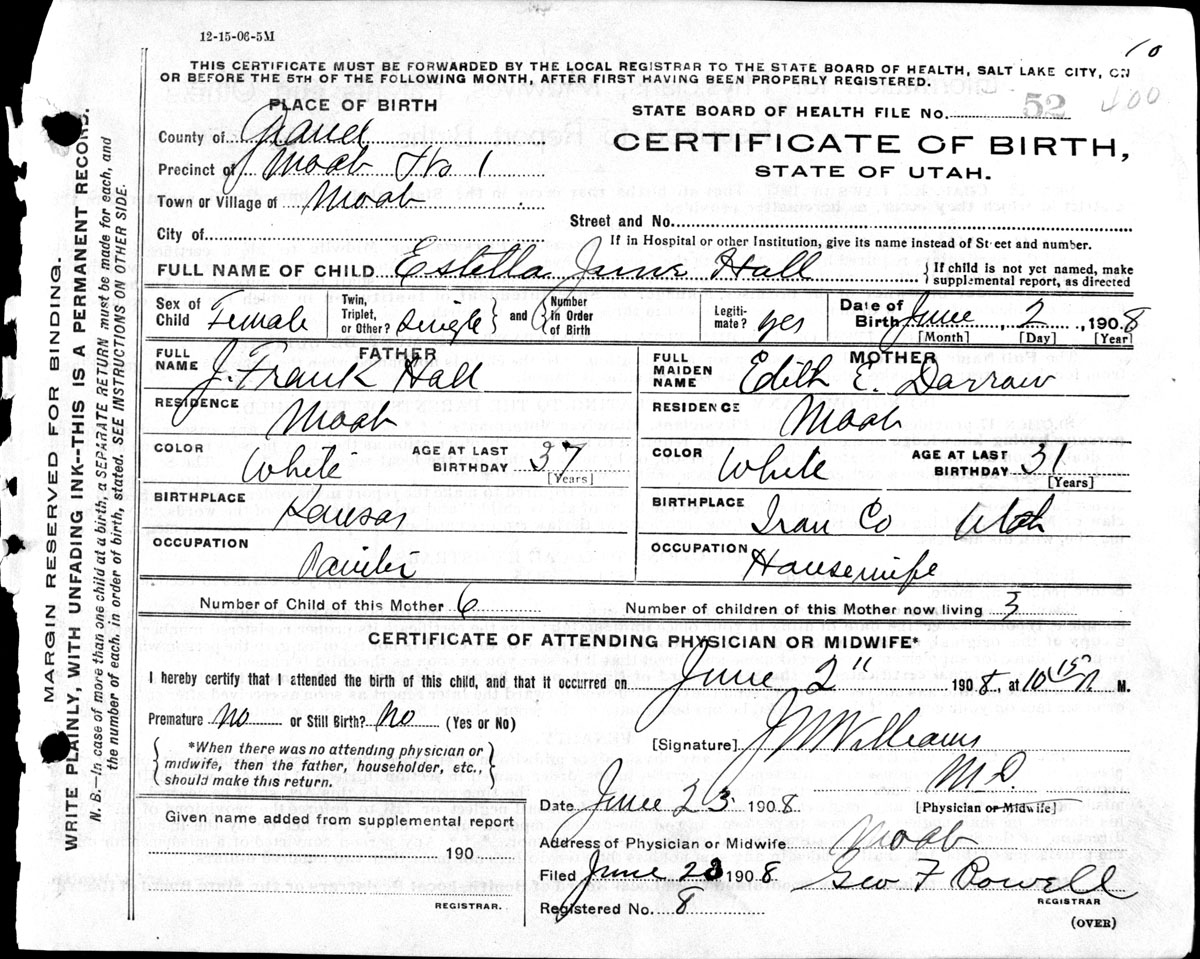 12-15-06-5M
THIS CERTIFICATE MUST BE FORWARDED BY THE LOCAL REGISTRAR TO THE STATE BOARD OF HEALTH, SALT LAKE CITY, ON
OR BEFORE THE 5TH OF THE FOLLOWING MONTH, AFTER FIRST HAVING BEEN PROPERLY REGISTERED.
PLACE OF BIRTH
STATE BOARD OF HEALTH FILE No. 52
County of Grand
CERTIFICATE OF BIRTH,
Precinct of Moab No 1
STATE OF UTAH.
Town or Village of Moab
Street and No.
City of
If in Hospital or other Institution, give its name instead of Street and number.
FULL NAME OF CHILD Estella Hall { If child is not yet named, make
supplemental report, as directed
Sex of Child Female Twin, Triplet, or Other? Single } and { Number In Order of Birth Legiti-mate? yes Date of Birth June 2 1908
[Month] [Day] [Year]
FATHER MOTHER
FULL NAME J. Frank Hall FULL MAIDEN NAME Edith E. Darrow
RESIDENCE Moab RESIDENCE Moab
COLOR White AGE AT LAST BIRTHDAY 37 [Years] COLOR White AGE AT LAST BIRTHDAY 31 [Years]
BIRTHPLACE Kansas BIRTHPLACE Iron Co Utah
OCCUPATION OCCUPATION Housewife
Number of Child of this Mother 6 Number of children of this Mother now living
CERTIFICATE OF ATTENDING PHYSICIAN OR MIDWIFE*
I hereby certify that I attended the birth of this child, and that it occurred on June 2" 1908, at 10 15 M.
Premature No or Still Birth? No (Yes or No)
[Signature] J W Williams
M.D.
{ *When there was no attending physician or
midwife, then the father, householder, etc.,
should make this return. }
Date June 23 1908 [Physician or Midwife]
Given name added from supplemental report
Address of Physician or Midwife Moab
190
Filed June 23 1908 Geo F Powell
REGISTRAR. REGISTRAR
Registered No. 8
(OVER)
MARGIN RESERVED FOR BINDING.
WRITE PLAINLY, WITH UNFADING INK--THIS IS A PERMANENT RECORD.
N. B.—In case of more than one child at a birth, a SEPARATE RETURN must be made for each, and
the number of each, in order of birth, stated. SEE INSTRUCTIONS ON OTHER SIDE.